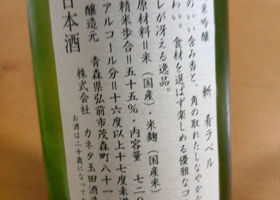 米吟醸 斬 青ラベル
のいい含み香と、角の取れたしなやかな
わい。食材を選ばず楽しめる優雅なコ
レが冴える逸品。
原材料=米(国産)・米麹(国産)
精米歩合=五十五%・内容量 七二
アルコール分=十六度以上十七度未満
醸造元 青森県弘前市茂森町八十一
株式会社 カネタ玉田酒造
お酒は二十歳になって
日本酒